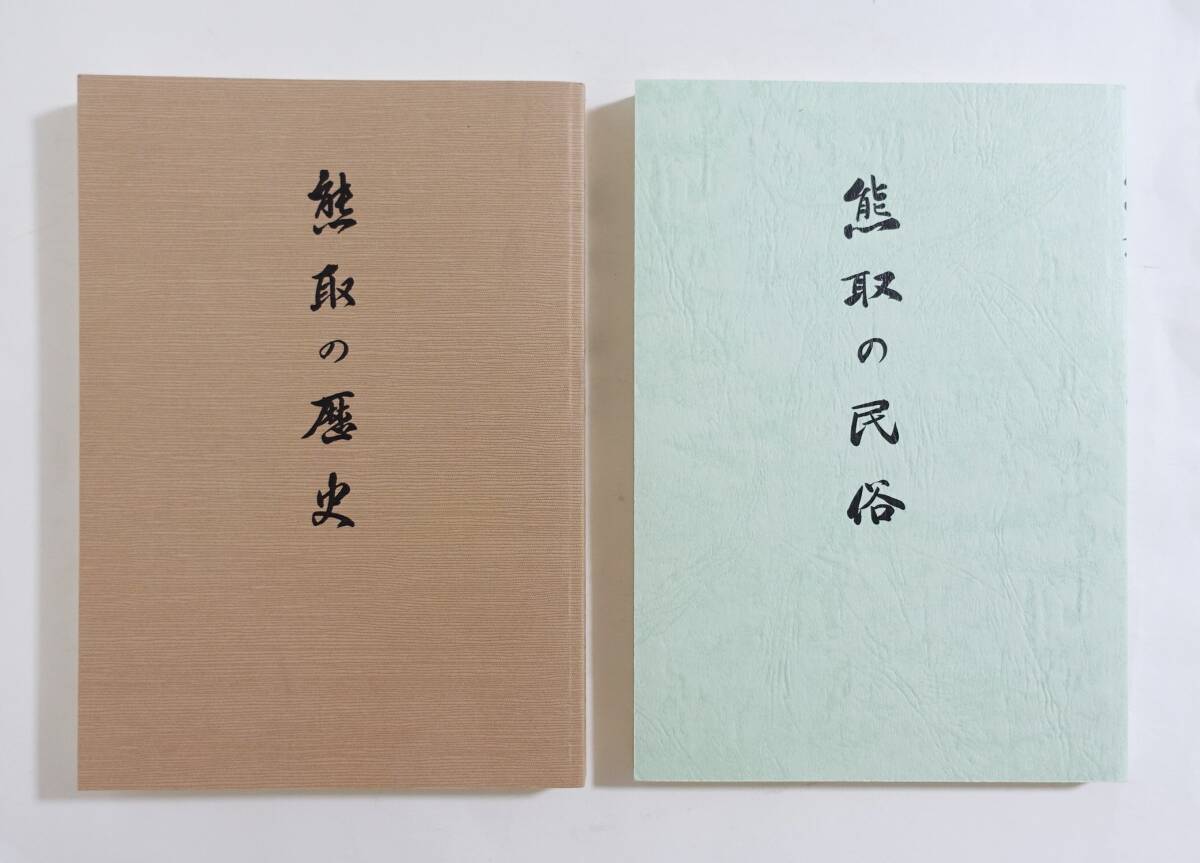 熊取の歴史
熊取の民俗